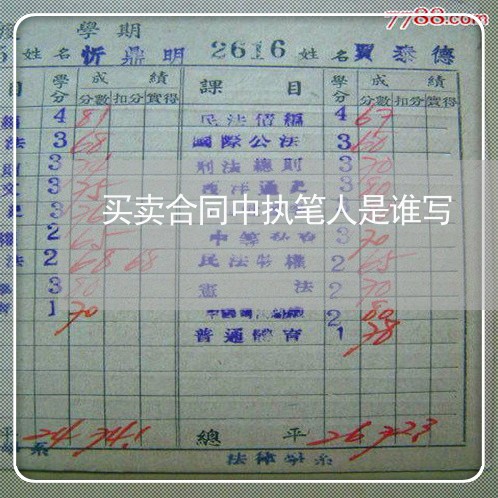 7788.com
學期
姓名 忻鼎明 2616 姓名 賈泰德
目 學分 成績 課目 學分 成績
分數 扣分 實得 分數 扣分 實得
4 81 民法債編 4 67
法 3 68 國際公法 3 60
3 刑法總則 3 70
3 75 西洋通史 3 80
买卖合同中执笔人是谁写
2 65 3 70
法 2 68 68 民法物權 2 65
3 80 憲法 2 70
1 70 2 80
普通體育 1 78
平 24 74.1 總平 26 72.3
系 法律學系